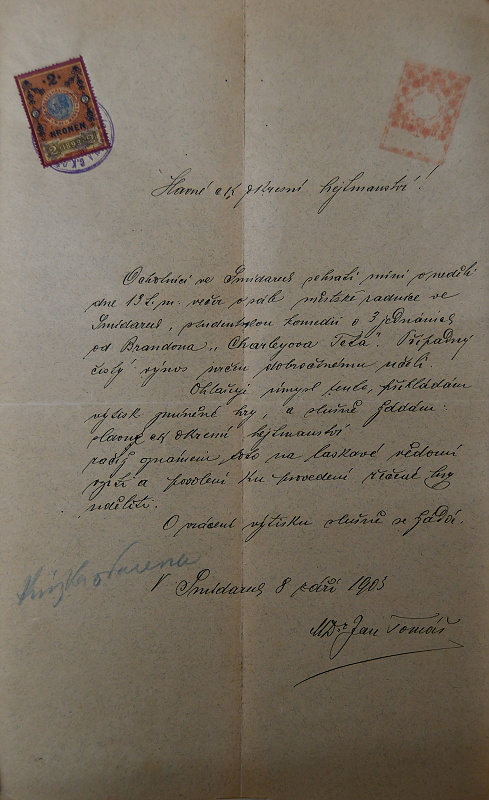 2
KRONEN
Slavné c.k. okresní hejtmanství!
Ochotníci ve Smidarech sehrají míní v neděli
dne 13 t.m. večer v sále městské radnice ve
Smidarech, studentskou komedii o 3 jednáních
od Brandona „Charleyova Teta". Případný
čistý výnos určen dobročinnému účeli.
Ohlašuji úmysl tento, překládám
výtisk zmíněné hry, a slušně žádám:
slavné ck okresní hejtmanství
račiž oznámení toto na laskavé vědomí
vzíti a povolení ku provedení řečené hry
uděliti.
O vrácení výtisku slušně se žádá.
V Smidarech 8 září 1903
MDr Jan Tomáš
Knížka vrácena